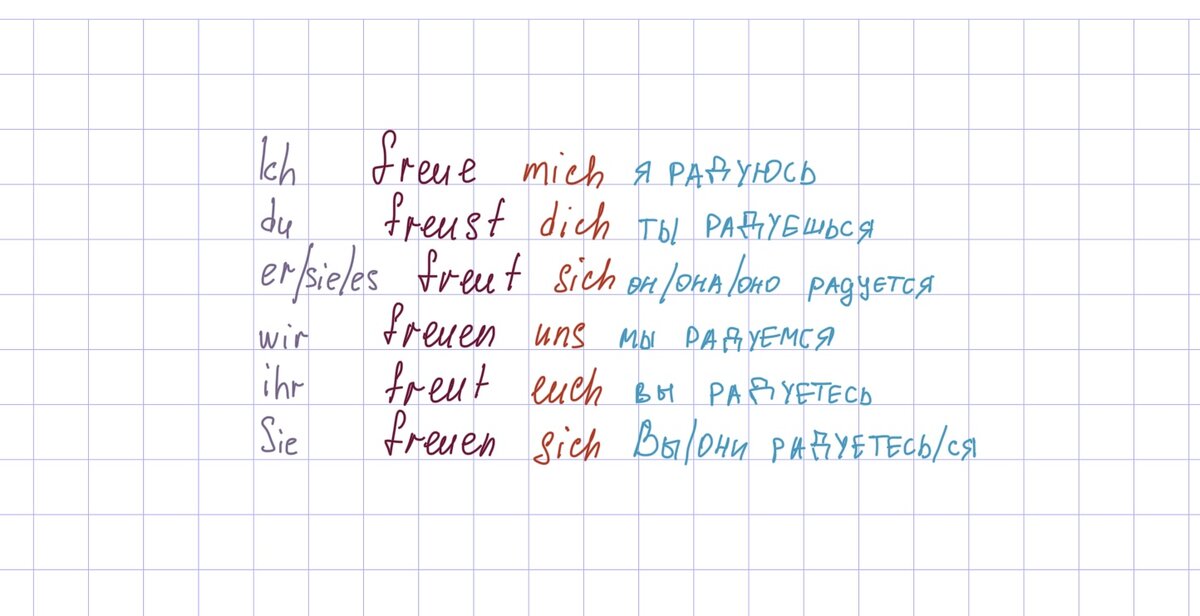 Ich freue mich я радуюсь
du freust dich ты радуешься
er/sie/es freut sich он/она/оно радуется
wir freuen uns мы радуемся
ihr freut euch вы радуетесь
Sie freuen sich Вы/они радуетесь/ся